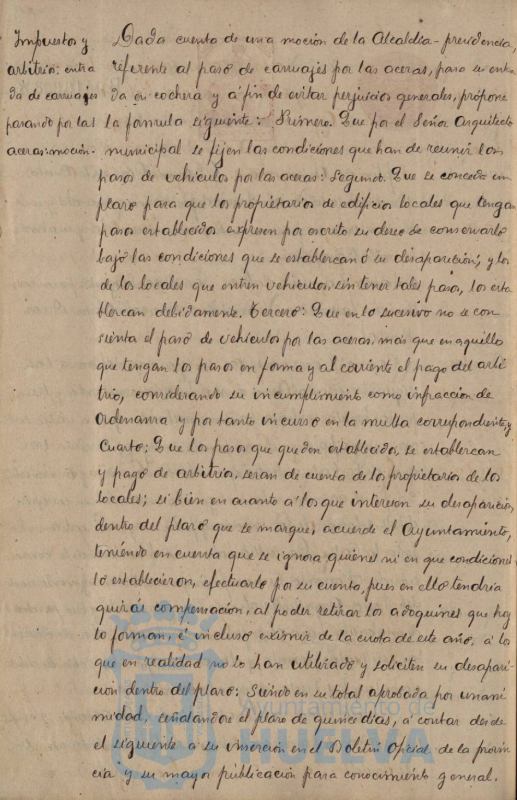 Impuestos y
arbitrios: entra
da de carruajes
pasando por las
aceras: moción.-
Dada cuenta de una moción de la Alcaldia-presidencia,
referente al paso de carruajes por las aceras, para su entra
da en cochera y a fin de evitar perjuicios generales, propone
la formula siguiente: Primero. Que por el Señor Arquitecto
municipal se fijen las condiciones que han de reunir los
pasos de vehiculos por las aceras: Segundo. Que se conceda un
plazo para que los propietarios de edificios locales que tengan
pasos establecidos expresen por escrito su deseo de conservarlo
bajo las condiciones que se establezcan ó su desaparición; y los
de los locales que entren vehiculos, sin tener tales pasos, los esta
blezcan debidamente. Tercero: Que en lo sucesivo no se con
sienta el paso de vehiculos por las aceras, más que en aquello
que tengan los pasos en forma y al corriente el pago del arbi
trio, considerando su incumplimiento como infracción de
Ordenanza y por tanto incurso en la multa correspondiente, y
Cuarto: Que los pasos que queden establecidos, se establezcan
y pago de arbitrios, seran de cuenta de los propietarios de los
locales; si bien en cuanto á los que interesen su desaparición
dentro del plazo que se marque, acuerde el Ayuntamiento,
teniendo en cuenta que se ignora quienes ni en que condiciones
lo establecieron, efectuarlo por su cuenta, pues en ello tendria
quizás compensación, al poder retirar los adoquines que hoy
lo forman, é incluso eximir de la cuota de este año, á los
que en realidad no lo han utilizado y soliciten su desapari-
cion dentro del plazo: Siendo en su total aprobada por unani
midad, señalandose el plazo de quince dias, a contar desde
el siguiente a su inserción en el Boletin Oficial de la provin
cia y su mayor publicación para conocimiento general.
Ayuntamiento de
HUELVA